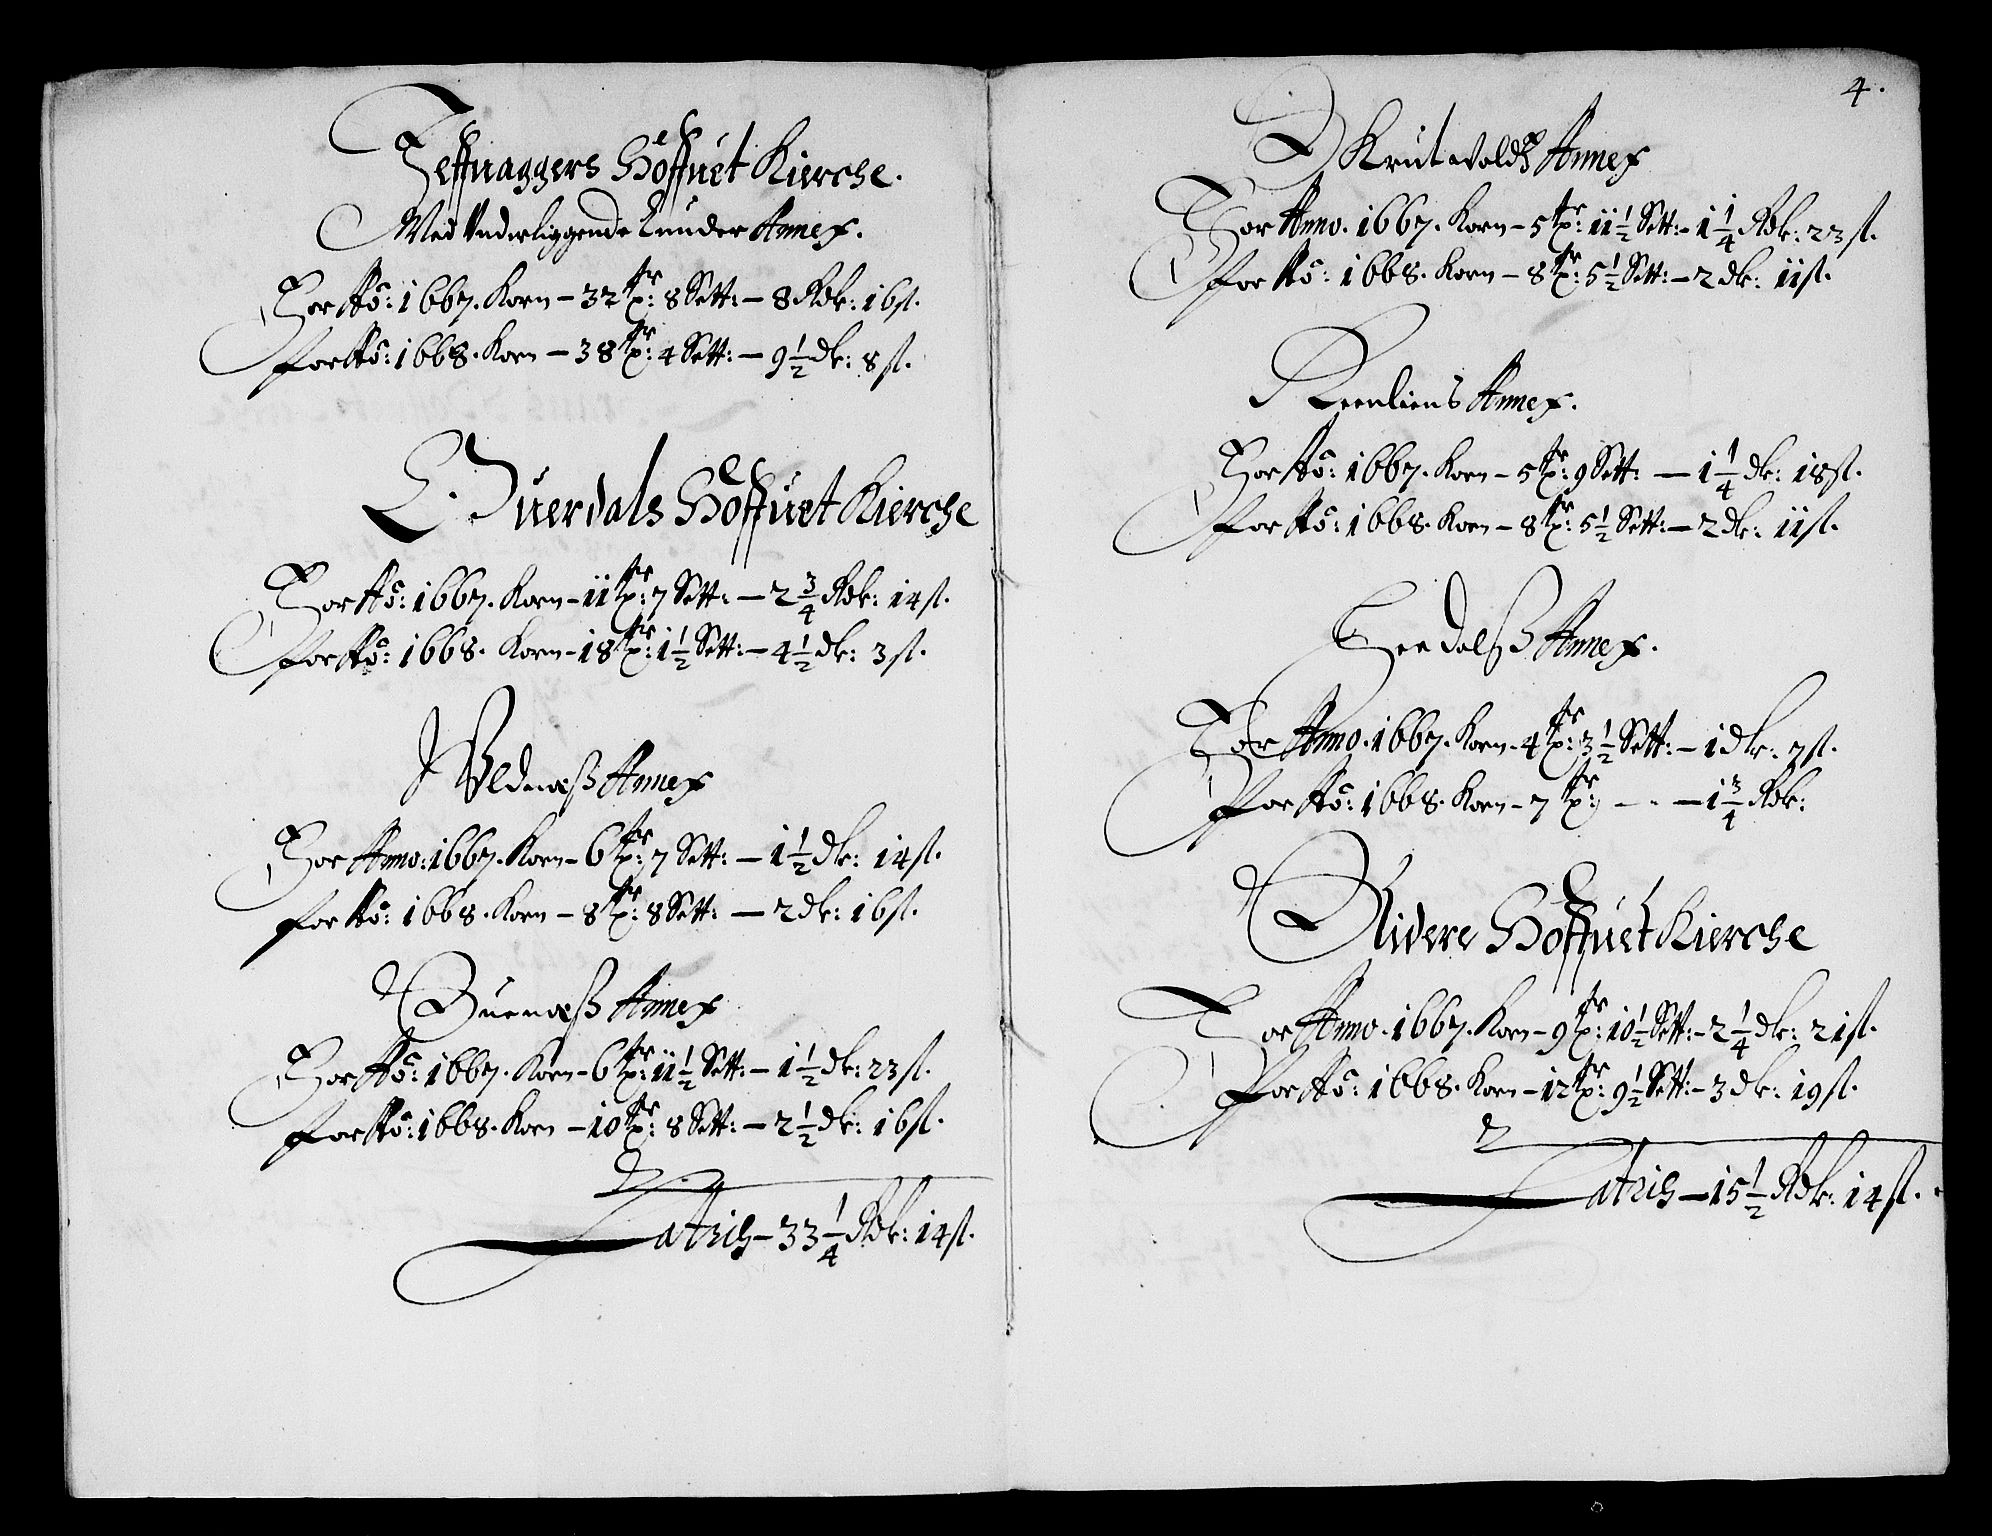 Jeffnaggers Höffuet Kierche.
Med Underliggende Lunder Annex.
For Aõ: 1667. Korn - 32 tr: 8 Sett: - 8 Rdr: 16 ß.
for Aõ: 1668. Korn - 38 tr: 4 Sett: - 9 1/2 dr: 8 ß.
Øuerdals Höffuet Kierche
For Aõ: 1667. Korn - 11 tr: 7 Sett: - 2 3/4 Rdr: 14 ß.
for Aõ: 1668. Korn - 18 tr: 1 1/2 Sett: - 4 1/2 dr: 3 ß.
Wednæß Annex
For Anno: 1667. Korn - 6 tr: 7 Sett: - 1 1/2 dr: 14 ß.
for Aõ: 1668. Korn - 8 tr: 8 Sett: - 2 dr: 16 ß.
Buenæß Annex
For Aõ: 1667. Korn - 6 tr: 11 1/2 Sett: - 1 1/2 dr: 23 ß.
for Aõ: 1668. Korn - 10 tr: 8 Sett: - 2 1/2 dr: 16 ß.
Latris - 33 1/4 Rdr: 14 ß.
4.
Krutvolds Annex
For Anno. 1667. Korn - 5 tr: 11 1/2 Sett: - 1 1/4 Rdr: 23 ß.
for Aõ: 1668. Korn - 8 tr: 5 1/2 Sett: - 2 dr: 11 ß.
Reenliens Annex.
For Aõ: 1667. Korn - 5 tr: 9 Sett: - 1 1/4 dr: 18 ß.
for Aõ: 1668. Korn - 8 tr: 5 1/2 Sett: - 2 dr: 11 ß.
Heedalß Annex.
For Anno. 1667. Korn - 4 tr: 3 1/2 Sett: - 1 dr: 7 ß.
for Aõ: 1668. Korn - 7 tr: - - - 1 3/4 Rdr:
Slidere Höffuet Kierche
For Anno. 1667. Korn - 9 tr: 10 1/2 Sett: - 2 1/4 dr: 21 ß.
for Aõ: 1668. Korn - 12 tr: 9 1/2 Sett: - 3 dr: 19 ß.
Latris - 15 1/2 Rdr: 14 ß.